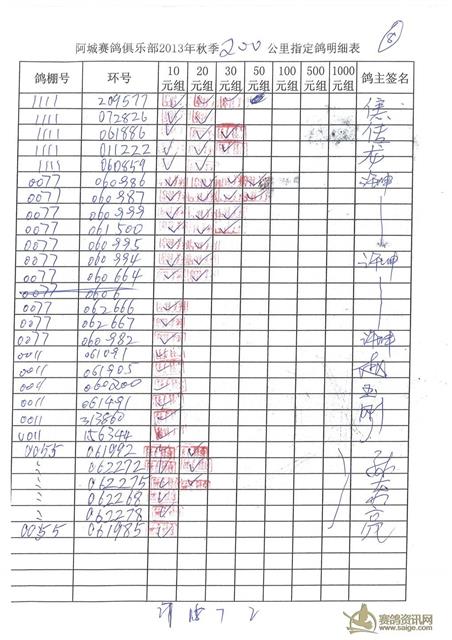 阿城赛鸽俱乐部2013年秋季200公里指定鸽明细表 8
鸽棚号 环号 10元组 20元组 30元组 50元组 100元组 500元组 1000元组 鸽主签名
1111 209577 ✓ ✓ ✓
1111 072826 ✓ ✓ ✓
1111 061886 ✓ ✓ ✓
1111 011222 ✓ ✓ ✓
1111 060859 ✓ ✓
0077 060986 ✓ ✓ ✓ ✓ 许坤
0077 060987 ✓ ✓ ✓ ✓
0077 060999 ✓ ✓ ✓
0077 061500 ✓ ✓ ✓
0077 060995 ✓ ✓
0077 060994 ✓ ✓ 许坤
0077 060664 ✓ ✓
0077 0606
0077 062666 ✓
0077 062667 ✓
0077 060982 ✓ 许坤
0011 061091 ✓
0011 061905 ✓
0011 060200 ✓
0011 061491 ✓
0011 313860 ✓
0011 156344 ✓
0055 061992 ✓ ✓
062272 ✓ ✓
062275 ✓ ✓
062268 ✓
062278 ✓
0055 061985 ✓
赛鸽资讯网
www.saige.com